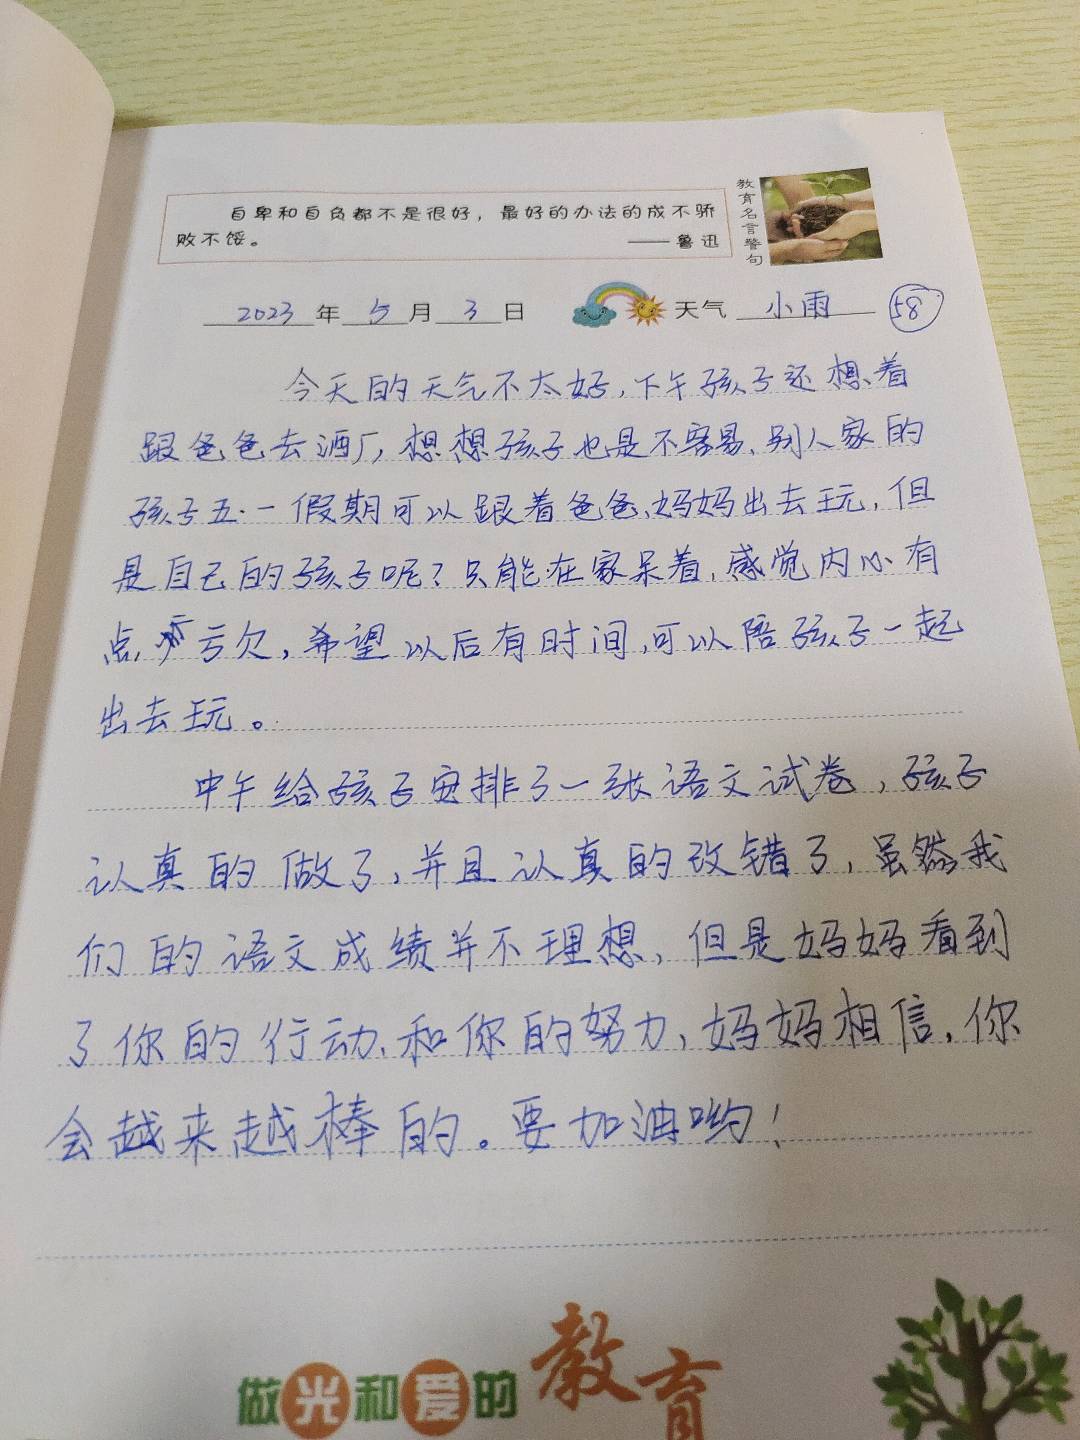 自卑和自负都不是很好，最好的办法的成不骄
败不馁。
——鲁迅
教育名言警句
2023年5月3日
天气 小雨
58
今天的天气不太好，下午孩子还想着
跟爸爸去酒厂，想想孩子也是不容易、别人家的
孩子五·一假期可以跟着爸爸、妈妈出去玩，但
是自己的孩子呢？只能在家呆着，感觉内心有
点亏欠，希望以后有时间，可以陪孩子一起
出去玩。
中午给孩子安排了一张语文试卷，孩子
认真的做了，并且认真的改错了，虽然我
们的语文成绩并不理想，但是妈妈看到
了你的行动、和你的努力，妈妈相信，你
会越来越棒的。要加油哟！
做光和爱的教育